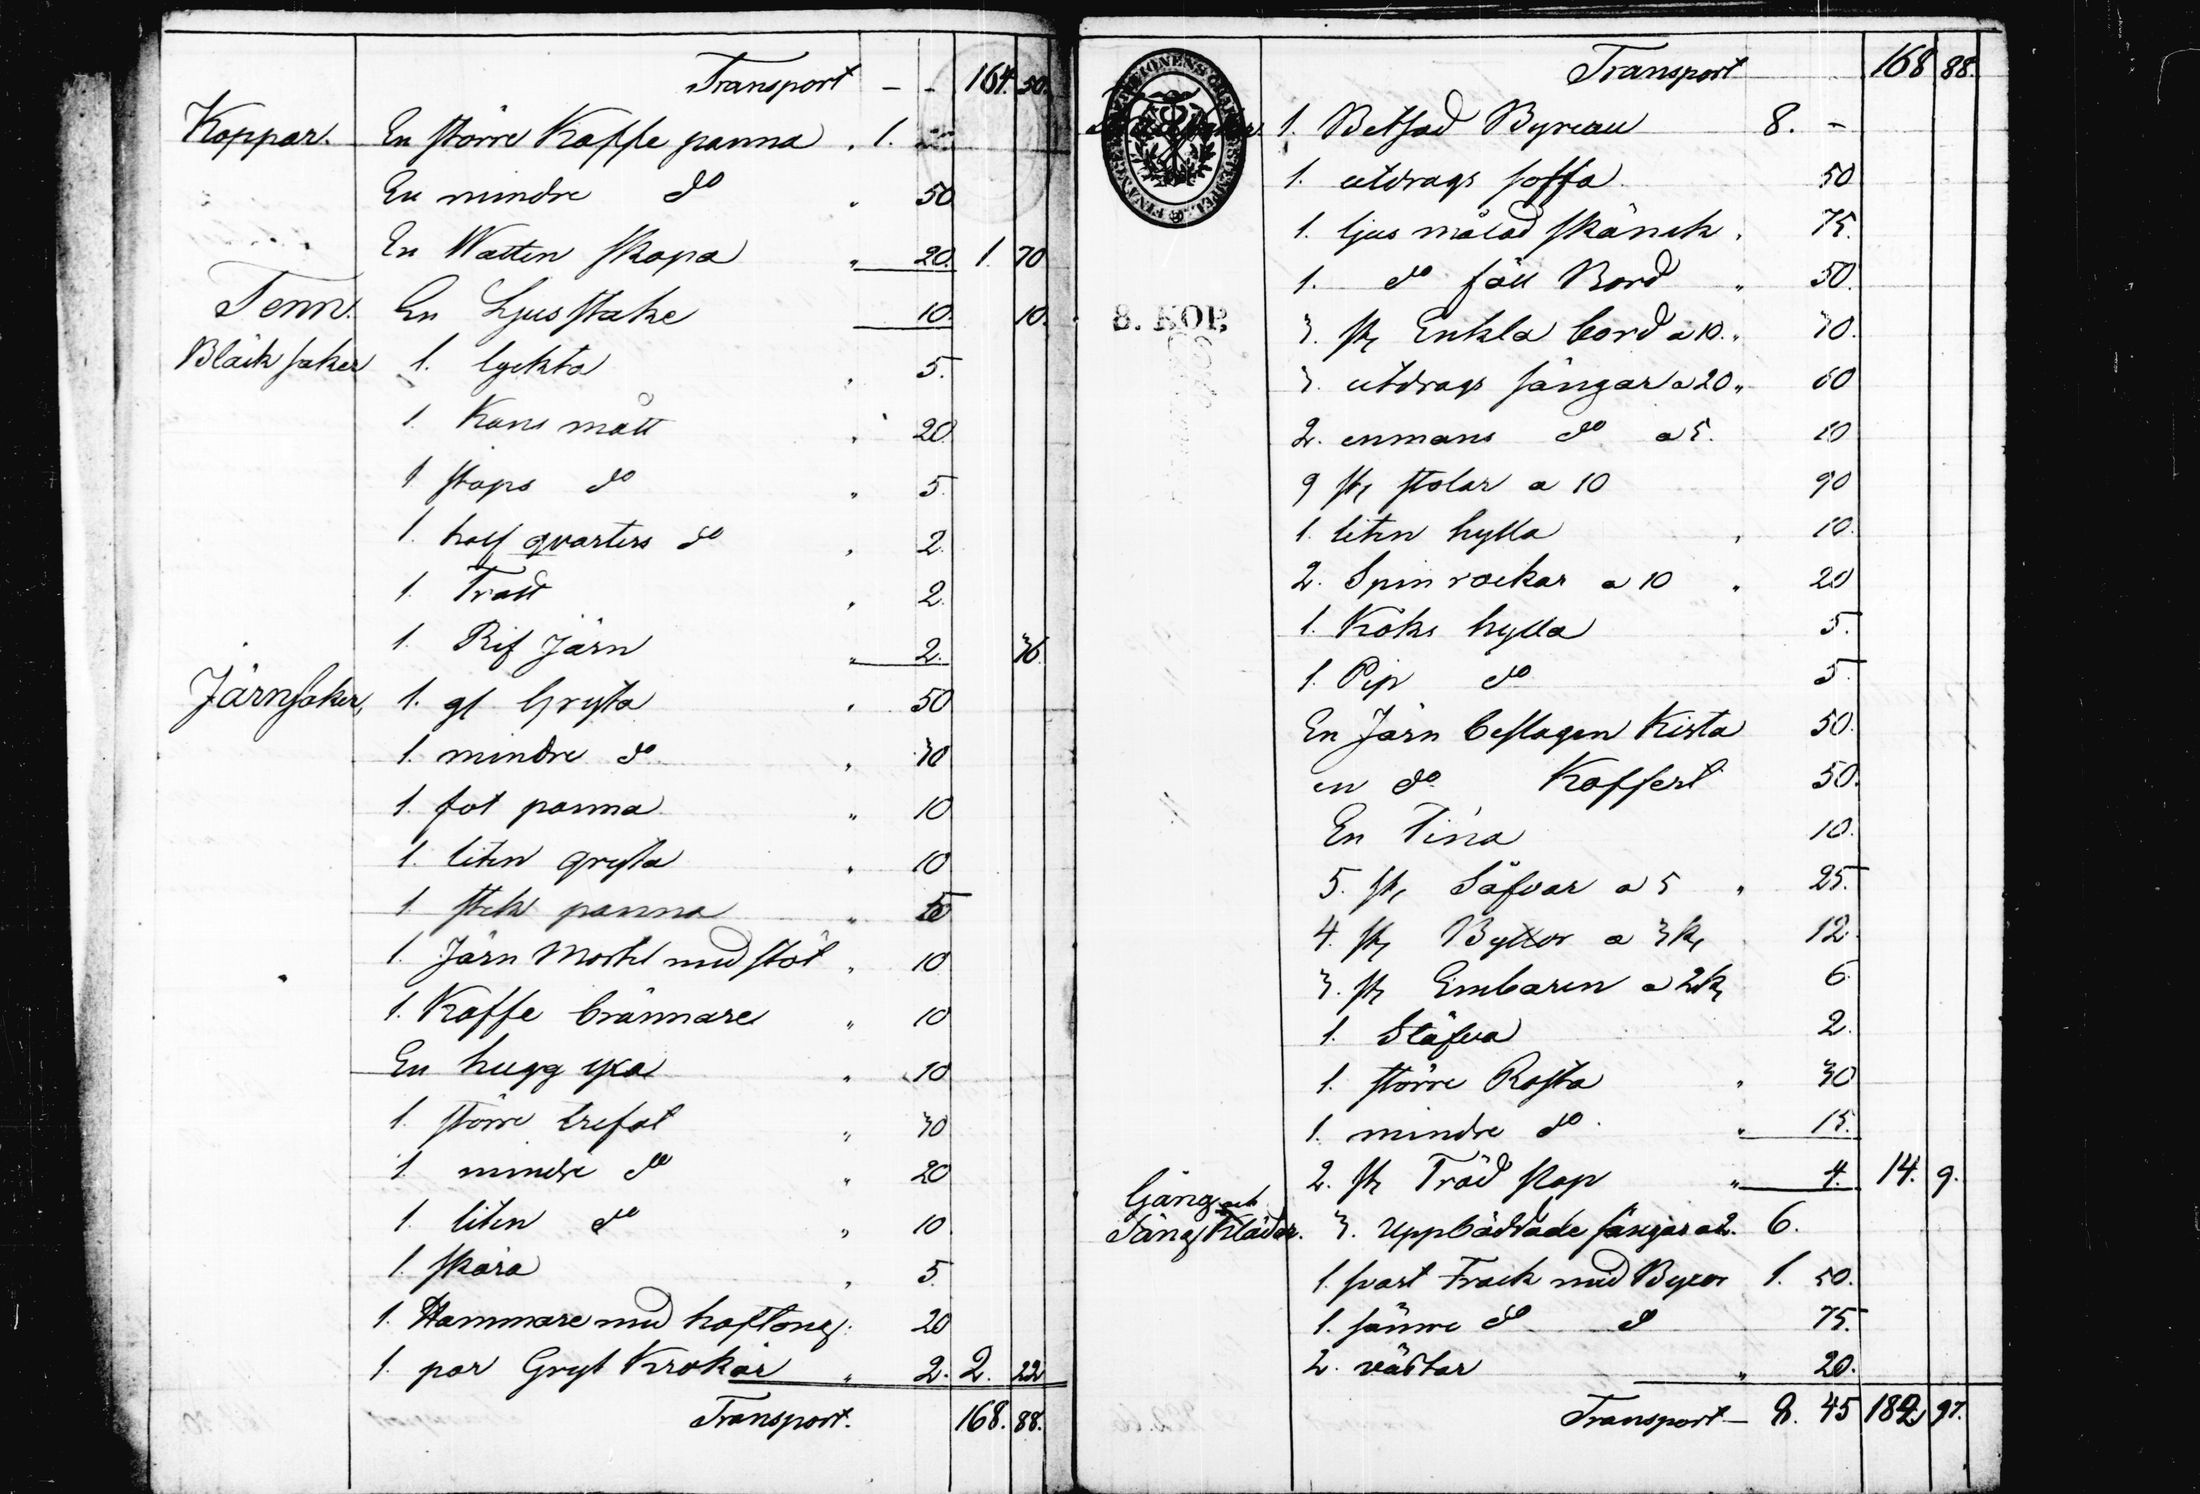 Transport - - 164. 50.
Koppar. En större Kaffe panna " 1. —
En mindre do " 50
En Watten skopa " 20. 1. 70
Tenn. En Ljusstake 10. 10.
Bläck saker 1. lyckta " 5.
1. Kans mått " 20.
1 stops do " 5.
1. half qvarters do " 2.
1. Tratt " 2.
1. Rif Järn " 2. 36.
Järnsaker, 1. gl Gryta " 50
1. mindre do " 30
1. fot panna " 10
1. liten gryta " 10
1 stek panna "
1. Järn Mortel med stöt " 10
1. Kaffe brännare " 10
En hugg yxa " 10
1. större trefot " 30
1. mindre do " 20
1. liten do " 10.
1. skära " 5.
1. Hammare med haftong. 20
1. par Gryt Krokar " 2. 2. 22
Transport. 168. 88.
Transport 168 88.
1. Betsad Byreau 8. -
1. utdrags soffa 50
1. ljus målad skänck " 75.
1. do fäll Bord " 50.
3. st, Enkla bord a 10. " 30.
3. utdrags sängar a 20 " 60
2. enmans do a 5. 10
9 st, stolar a 10 90
1. liten hylla " 10.
2. Spinrockar a 10 " 20
1. Köks hylla 5.
1. Pip do 5.
En Järn beslagen Kista 50.
en do Koffert 50.
En Tina 10.
5. st, Säfvar a 5 " 25.
4. st, Byttor a 3 k, 12.
3. st, Embaren a 2 k, 6.
1. Stäfva 2.
1. större Rosta " 30
1. mindre do " 15.
2. st, Träd skop " 4. 14. 9.
Gång och
Säng Kläder. 3. Uppbäddade sängar a 2. 6.
1. svart Frack med Byxor 1. 50.
1. sämre do do 75.
2. västar " 20.
Transport - 8. 45 182 97.
FINANSEXPEDITIONENS CHARTÆSTEMPEL
8. KOP.